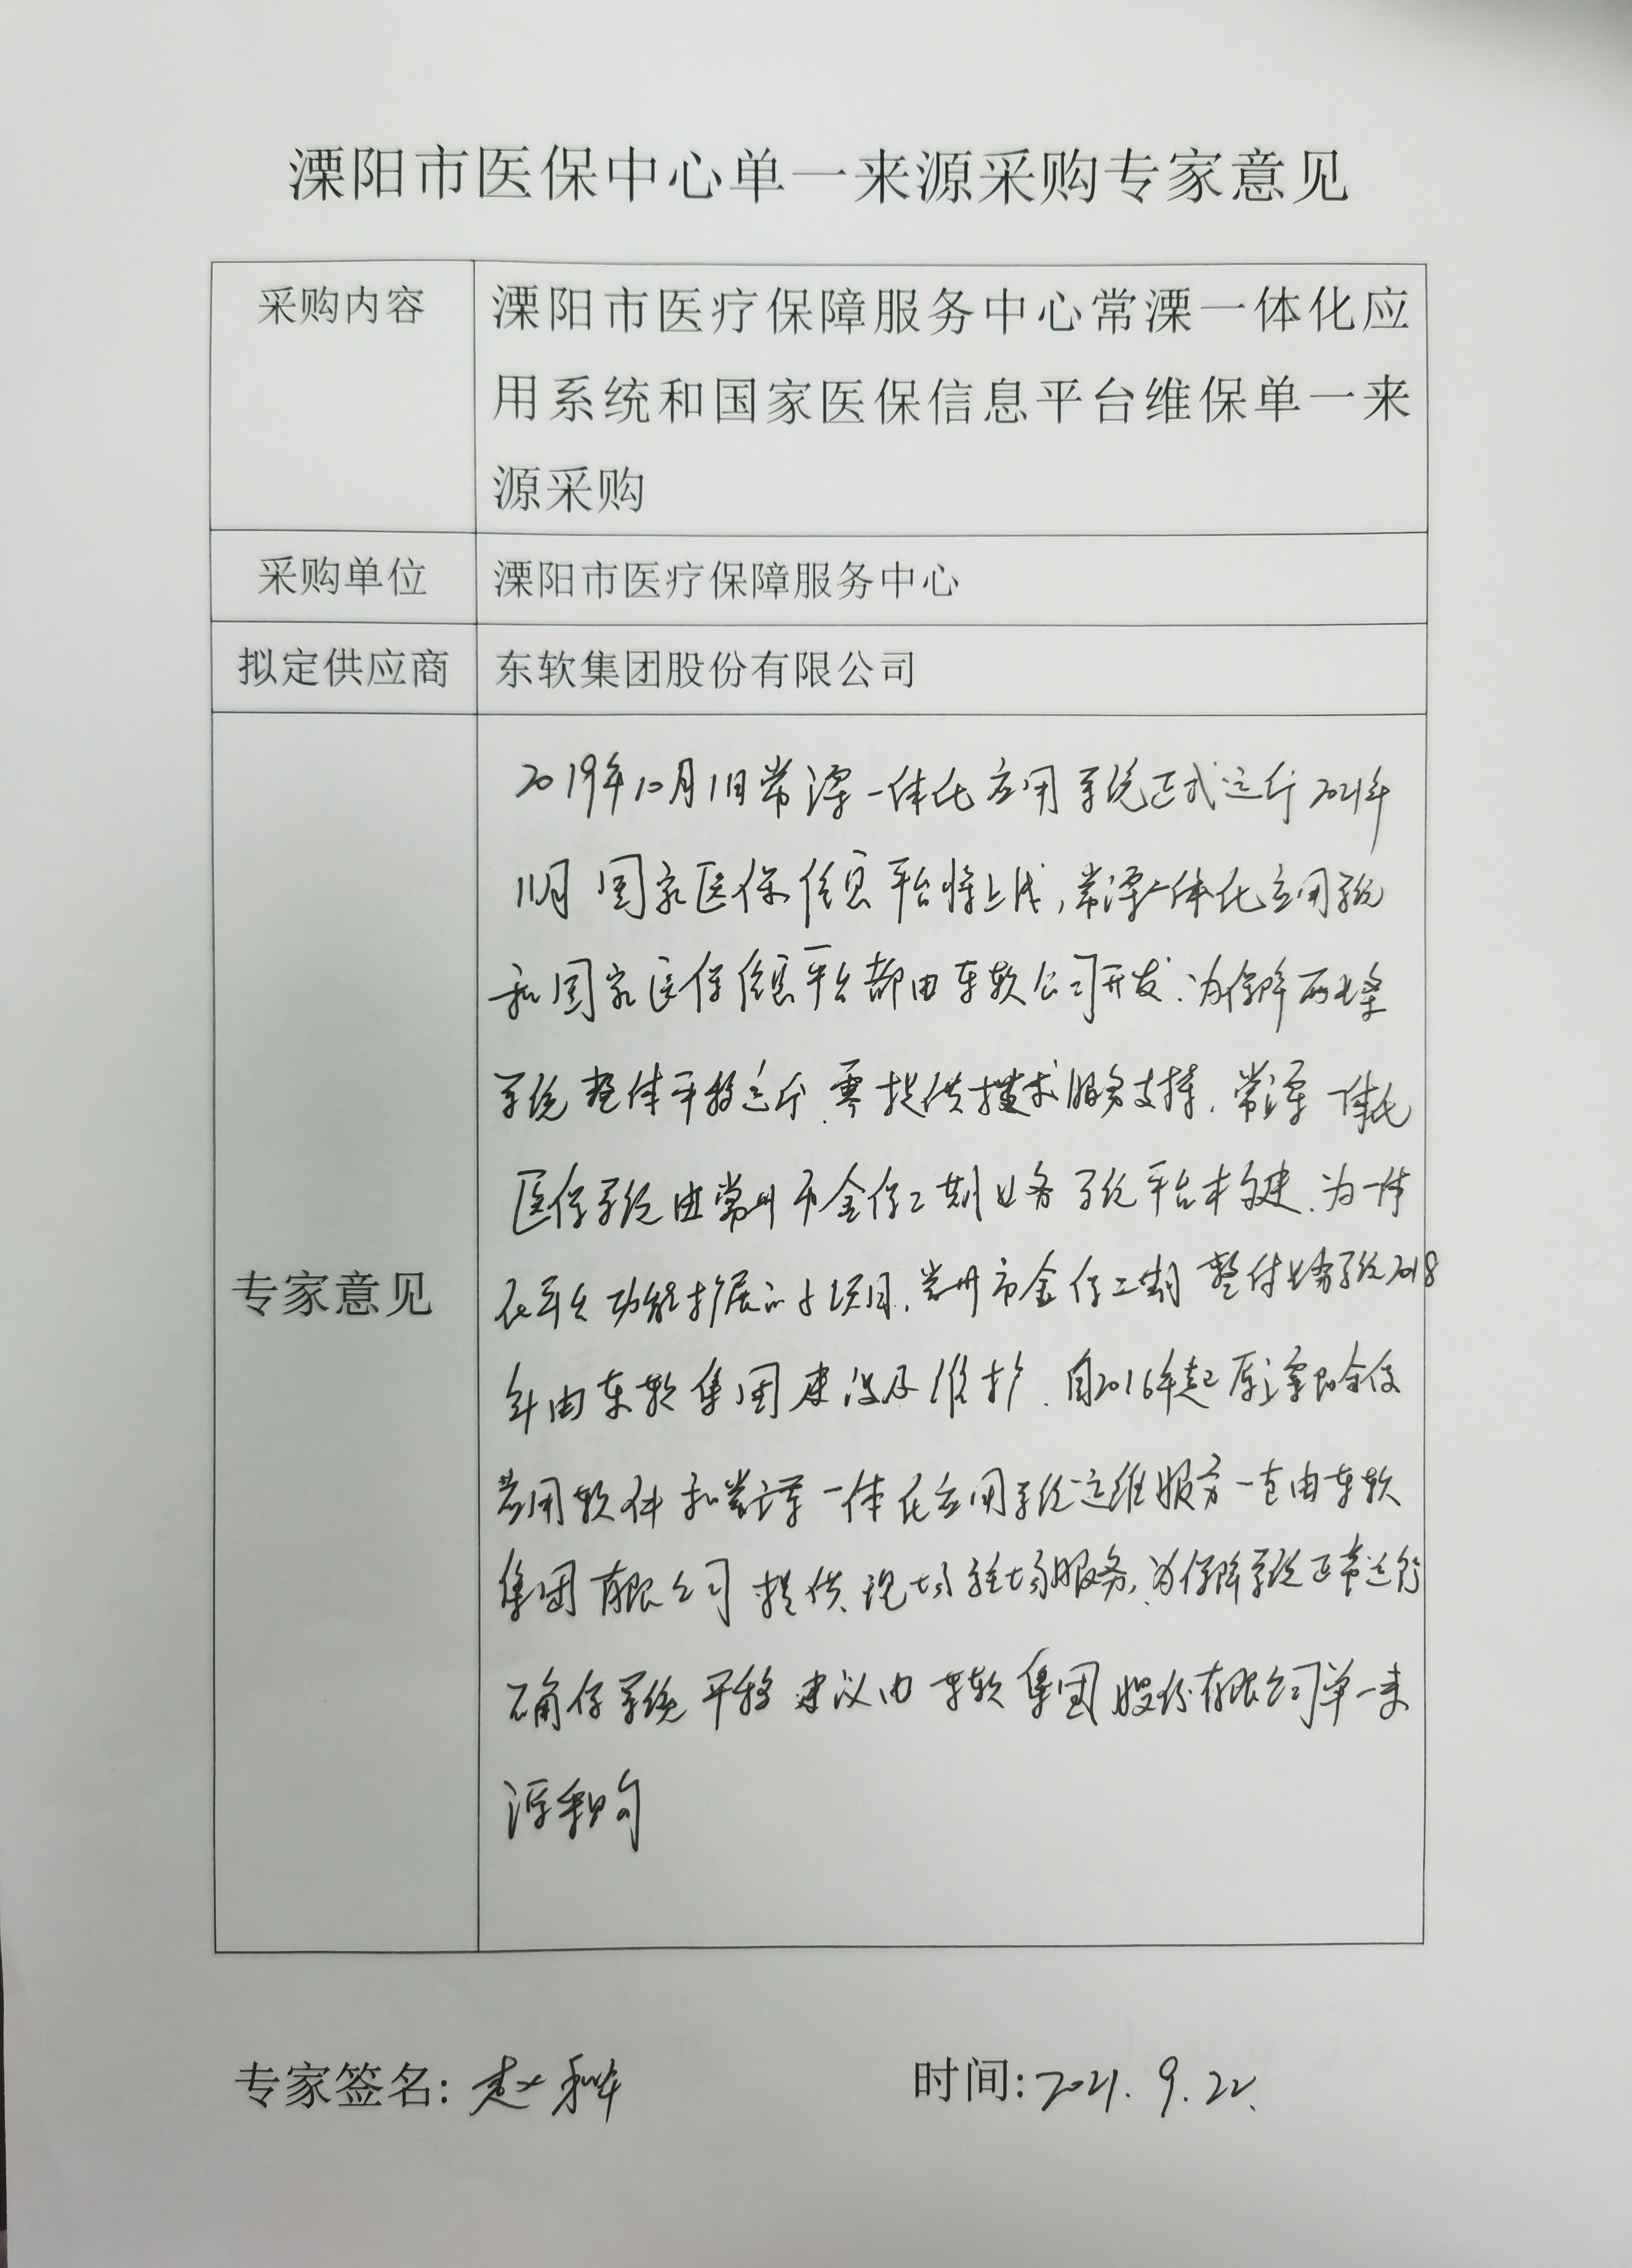 溧阳市医保中心单一来源采购专家意见
采购内容
溧阳市医疗保障服务中心常溧一体化应
用系统和国家医保信息平台维保单一来
源采购
采购单位
溧阳市医疗保障服务中心
拟定供应商
东软集团股份有限公司
专家意见
2019年10月1日常溧一体化应用系统正式运行2021年
11月国家医保信息平台将上线,常溧一体化应用系统
和国家医保信息平台都由东软公司开发.为保障两
系统整体平移运行.需提供技术服务支持.常溧一体化
医保系统由常州市金保二期业务系统平台构建.为一体
化平台功能扩展的项目.常州市金保二期整体业务系统2018
年由东软集团建设及维护.自2016年起原溧阳金保
应用软件和常溧一体化应用系统运维服务一直由东软
集团有限公司提供现场驻场服务,为保障系统正常运行
确保系统平移建议由东软集团股份有限公司单一来
源采购
专家签名:赵
时间:2021.9.22.